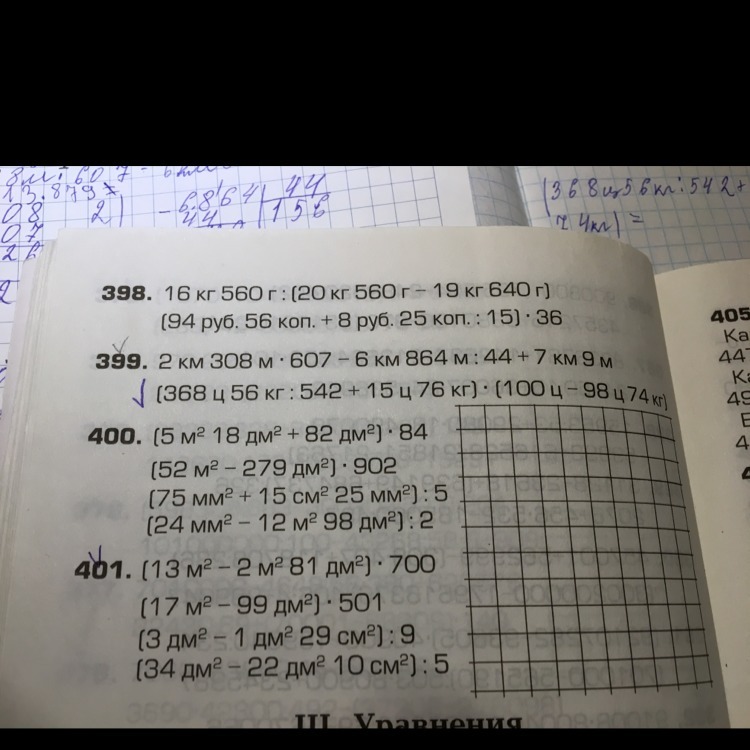 6864 | 44
44 | 156
(368ц56кг:542+
74кг)=
398. 16 кг 560 г : (20 кг 560 г – 19 кг 640 г)
(94 руб. 56 коп. + 8 руб. 25 коп. : 15) · 36
399. 2 км 308 м · 607 – 6 км 864 м : 44 + 7 км 9 м
(368 ц 56 кг : 542 + 15 ц 76 кг) · (100 ц – 98 ц 74 кг)
400. (5 м² 18 дм² + 82 дм²) · 84
(52 м² – 279 дм²) · 902
(75 мм² + 15 см² 25 мм²) : 5
(24 мм² – 12 м² 98 дм²) : 2
401. (13 м² – 2 м² 81 дм²) · 700
(17 м² – 99 дм²) · 501
(3 дм² – 1 дм² 29 см²) : 9
(34 дм² – 22 дм² 10 см²) : 5
III. Уравнения
405
Ка
447
Ка
49
4